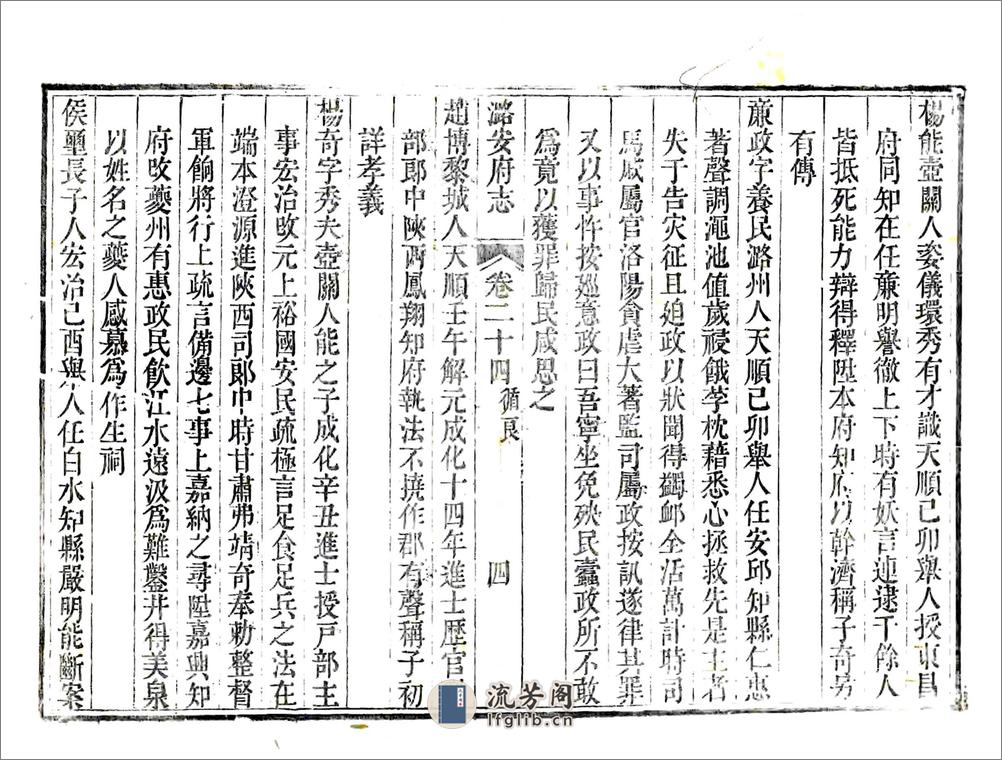 楊能壺關人姿儀環秀有才識天順己卯舉人授東昌
府同知在任亷明譽徹上下時有妖言連逮千餘人
皆抵死能力辯得釋陞本府知府以幹濟稱子奇另
有傳
亷政字養民潞州人天順己卯舉人任安邱知縣仁惠
著聲調澠池值歲祲餓莩枕藉悉心拯救先是主者
失于告灾征且廹政以狀聞得蠲䘏全活萬計時司
馬戚屬官洛陽貪虐大著監司屬政按訊遂律其罪
又以事忤按廵意政曰吾寧坐免殃民蠹政所不敢
爲竟以獲罪歸民咸思之
潞安府志 卷二十四 循良 四
趙博黎城人天順壬午解元成化十四年進士歴官
部郎中陝西鳳翔知府執法不撓作郡有聲稱子初
詳孝義
楊奇字秀夫壺關人能之子成化辛丑進士授戸部主
事宏治改元上裕國安民疏極言足食足兵之法在
端本澄源進陝西司郎中時甘肅弗靖奇奉勅整督
軍餉將行上疏言備邊七事上嘉納之尋陞嘉興知
府改夔州有惠政民飲江水遠汲爲難鑿井得美泉
以姓名之夔人感慕爲作生祠
侯璽長子人宏治己酉舉人任白水知縣嚴明能斷案
流芳阁
lfglib.cn